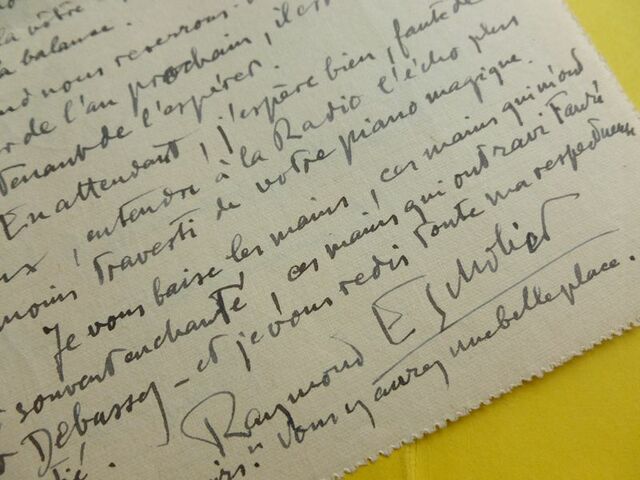 la vôtre
la balance.
nous reverrons
de l'an prochain, il est
tenant de l'espérer.
En attendant, j'espère bien, faute de
entendre à la Radio l'écho plus
moins travesti de votre piano magique.
Je vous baise les mains, ces mains qui m'ont
souvent enchanté, ces mains qui ont ravi Fauré
Debussy - et je vous redis toute ma respectueuse
Raymond
Vous y aurez une belle place.